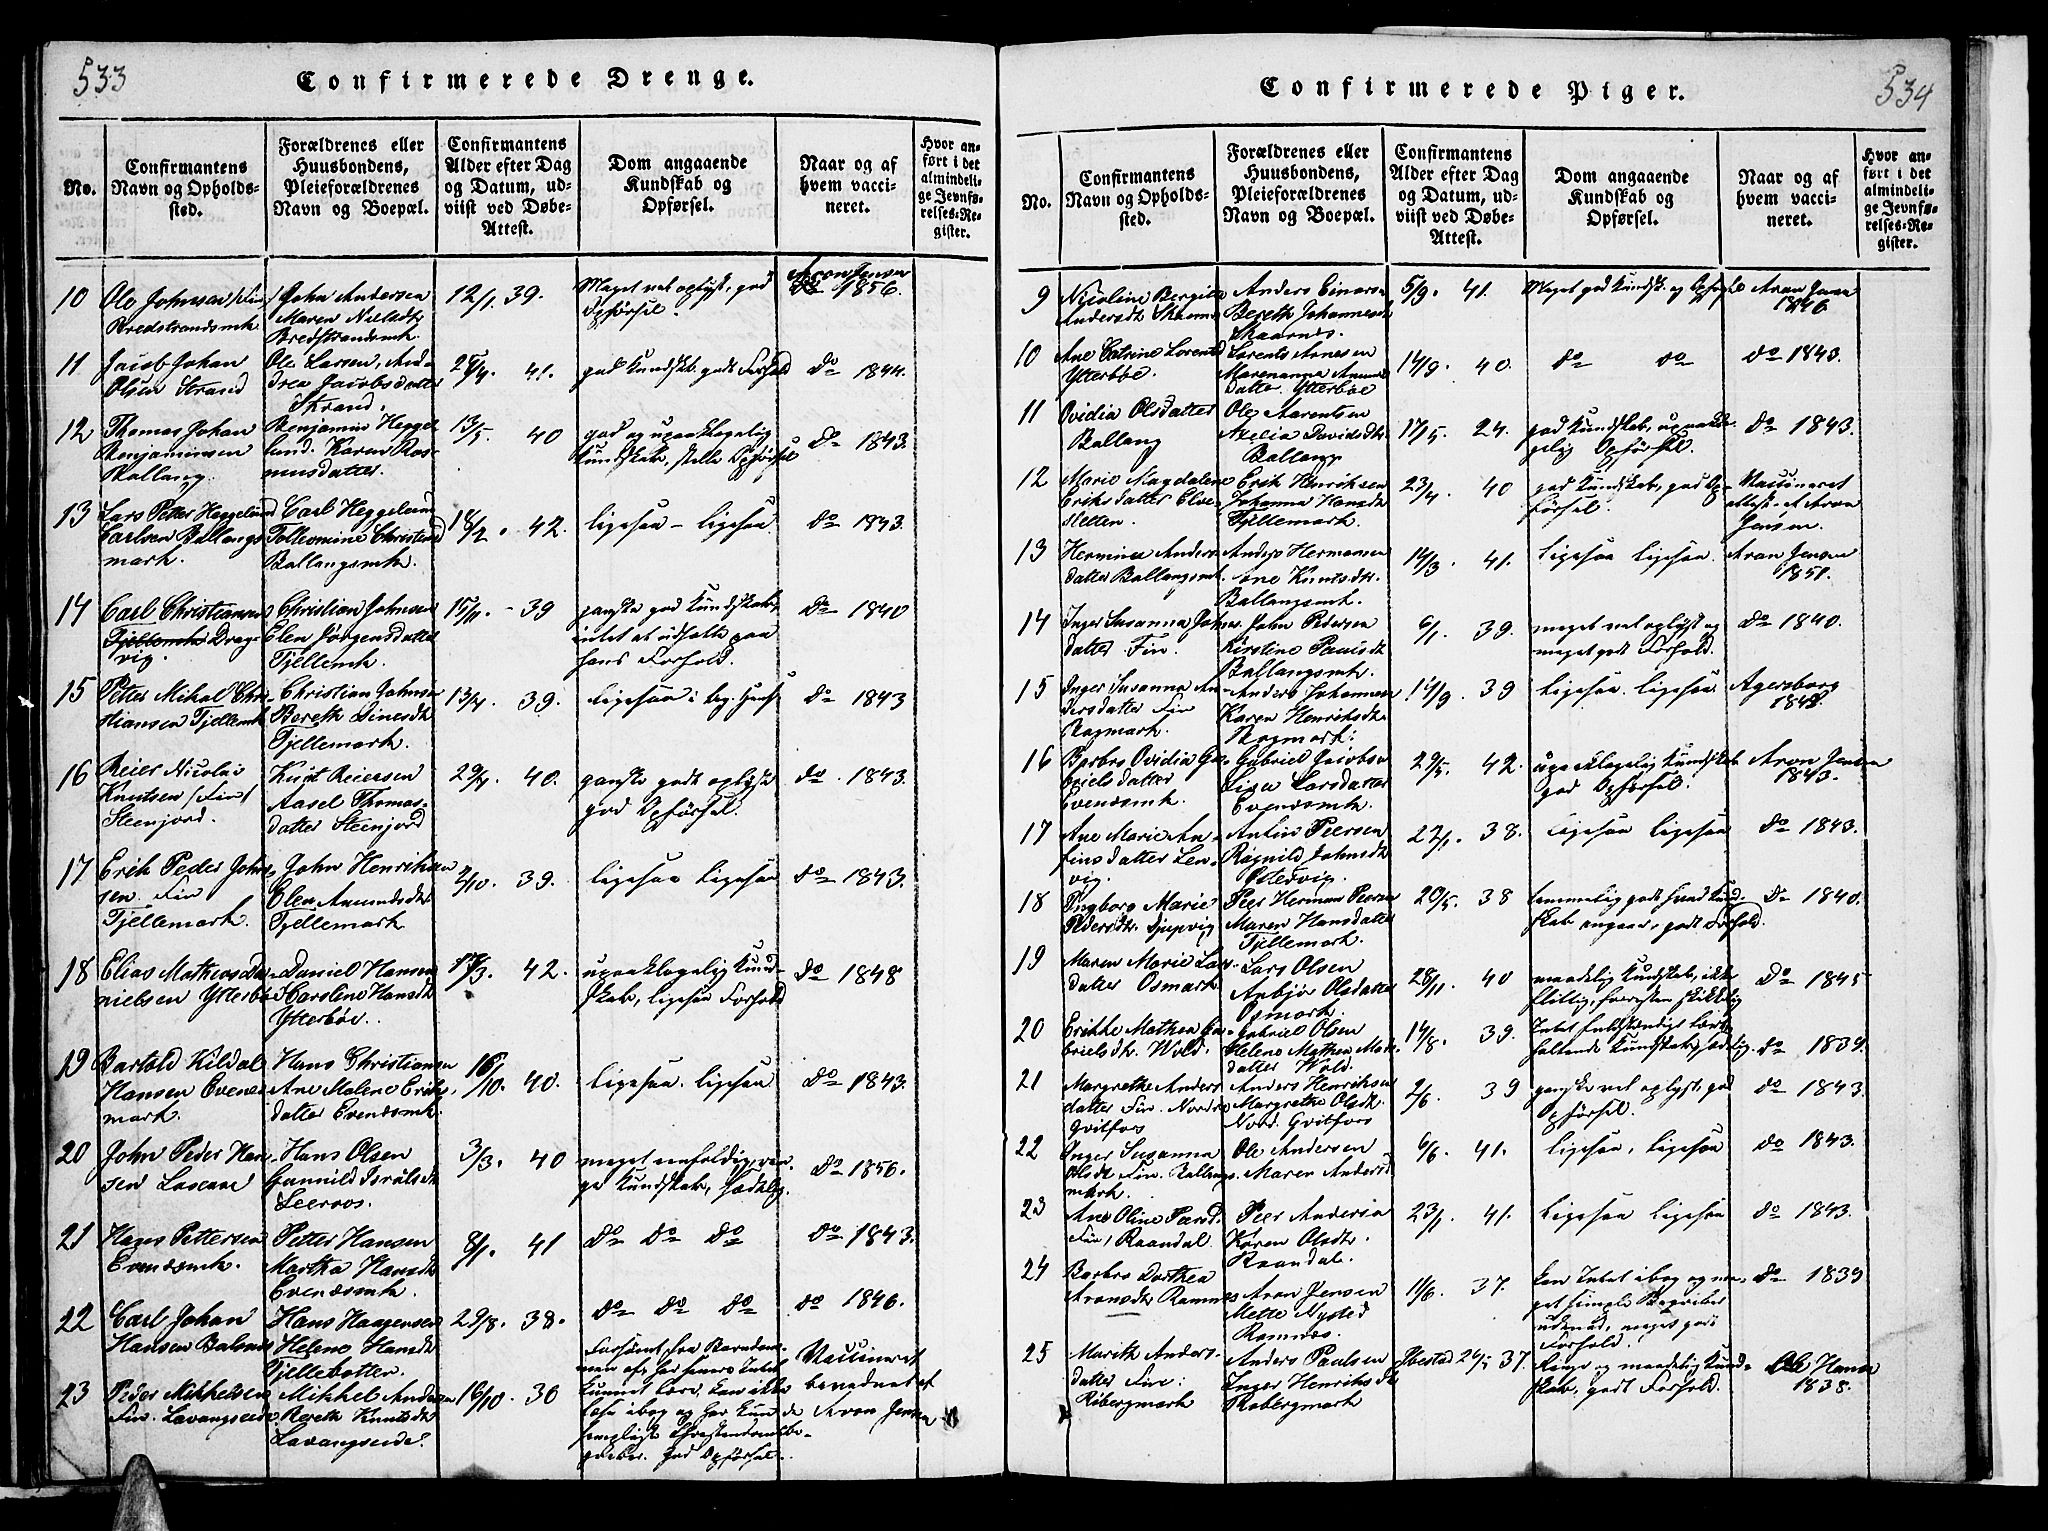 533
Confirmerede Drenge.
No.
Confirmantens Navn og Opholds-sted.
Forældrenes eller Huusbondens, Pleieforældrenes Navn og Boepæl.
Confirmantens Alder efter Dag og Datum, ud-viist ved Døbe-Attest.
Dom angaaende Kundskab og Opførsel.
Naar og af hvem vacci-neret.
Hvor an-ført i det almindeli-ge Jevnfø-relses-Re-gister.
10
Ole Johnsen
Bredstrandsmk
John Andersen
Maren Nielsdtr
Bredstrandsmk.
12/1. 39.
Meget vel oplyst, god
Opførsel.
Aron Jensen
1856.
11
Jacob Johan
Olsen Strand
Ole Larsen, An-
drea Jacobsdatter
Strand.
41.
god Kundskb. godt Forhold
do 1844.
12
Thomas Johan
Benjaminsen
Ballang.
Benjamin Hegge-
lund. Karen Ras-
musdatter.
13/5. 40
god og upaaklagelig
Kundskab, stille Opførsel
do 1843.
13
Lars Petter Heggelund
Carlsen Ballangs-
mark.
Carl Heggelund
Ballangsmk.
42.
ligesaa - ligesaa
do 1843.
14
Carl Christiansen
Fjellemk Drag-
vig.
Christian Johnsen
Elen Jørgensdatter
Fjellemk.
15/11. - 39
ganske god Kundskab,
intet at udsætte paa
hans Forhold.
do 1840
15
Petter Mikal Chri-
stiansen Fjellemk
Christian Johnsen
Bereth Dinesdtr
Fjellemark.
13/4. 39.
ligesaa i
do 1843
16
Reier Nicolai
Knutsen /Fin/
Steenjord.
Knut Reiersen
Aasel Thomas-
datter Steenjord
29/4. 40.
ganske godt oplyst
god Opførsel.
do. 1843.
17
Erik Peder John-
sen. Fin
Fjellemark.
John Henriksen
Elen Amundsdtr
Fjellemark
2/10. 39.
ligesaa ligesaa
do 1843.
18
Elias Mathias Da-
nielsen Ytterbø
Daniel Hansen
Caroline Hansdtr
Ytterbøe.
42.
upaaklagelig Kund-
skab, ligesaa Forhold
do 1848
19
Bartold Kildal
Hansen Evenes-
mark.
Hans Christiansen
Ane Malene Eriks-
datter Evenæsmk.
16/10. 40.
ligesaa. ligesaa
do 1843.
20
John Peder Han-
sen
Hans Olsen
Gunnild Isralsdtr
Leeraas.
3/3. 40
meget eenfoldig, rin-
ge Kundskab, sædelig.
do 1856.
21
Hans Pettersen
Evenæsmk.
Petter Hansen
Martha Hansdtr
Evenæsmk.
8/1. 41
do do do
do 1843.
22
Carl Johan
Hansen
Hans Haagensen
Helene Hansdtr
29/8. 38.
do do do
do 1846.
23
Peder Mikkelsen
Fin. Lavangseide
Mikkel Andersen
Bereth Knutsdtr
Lavangseide.
16/10. 36
Forsømt fra Barndom-
men af, har hans Intet
kunnet lære, kan ikke
læse i bog og har kun de
Christendomsbe-
greber. God Opførsel.
Vaccineret
bevidnet af
Aron Jensen
534
Confirmerede Piger.
No.
Confirmantens Navn og Opholds-sted.
Forældrenes eller Huusbondens, Pleieforældrenes Navn og Boepæl.
Confirmantens Alder efter Dag og Datum, ud-viist ved Døbe-Attest.
Dom angaaende Kundskab og Opførsel.
Naar og af hvem vacci-neret.
Hvor an-ført i det almindeli-ge Jevnfø-relses-Re-gister.
9
Nicoline Bergitte
Andersdtr Skaanes
Anders Einarsen
Bereth Johannesdtr
Skaanes.
5/9. 41.
Meget god Kundsk. og Opførsel
Aron Jensen
1846
10
Ane Catrine Lorents
Ytterbøe.
Lorents Arnesen
Marenanna
datter Ytterbøe
14/9. 40.
do do
do 1843.
11
Ovidia Olsdatter
Ballang
Ole Aarentsen
Axelia Davidsdtr
Ballang
17/5. 24.
god Kundskab, upaakla-
gelig Opførsel.
do 1843.
12
Marie Magdalene
Eriksdatter Elve-
sletten.
Erik Henriksen
Johanna Hansdtr
Fjellemark.
23/4. 40
god Kundskab, god Op-
førsel.
Vaccineret
attest. af Aron
Jensen.
13
Hermine Anders-
datter Ballangsmk.
Anders Hermansen
Ane Knutsdtr.
Ballangsmk.
14/3. 41.
Ligesaa ligesaa
Aron Jensen
1851.
14
Inger Susanna Johns-
datter. Fin.
John Pedersen
Kirstine Paulsdtr
Ballangsmk.
6/1. 39.
meget vel oplyst og
meget godt Forhold.
do 1840.
15
Inger Susanna An-
dersdatter Fin
Anders Johannesen
Karen Henriksdtr
14/9. 39
ligesaa. ligesaa
Agersborg
16
Barbro Ovidia Ga-
brielsdatter
Evenæsmk.
Gabriel Jacobsen
Lisa Larsdatter
Evenæsmk.
29/5. 42.
upaaklagelig Kundskab
god Opførsel.
Aron Jensen
1843.
17
Ane Marie An-
finsdatter Len-
vig.
Anfin Peersen
Ragnild Johnsdtr
22/1. 38.
ligesaa ligesaa
do 1843.
18
Ingborg Marie
Pedersdtr. Djupvig
Peer Herman Peersen
Maren Hansdatter
Fjellemark.
20/5. 38
temmelig godt hvad Kund-
skab angaar, godt Forhold.
do 1840.
19
Maren Marie Lars-
datter Osmark
Lars Olsen
Anbjør Olsdatter
Osmark.
28/11. 40
maadelig Kundskab, ikke
flittig, forresten skikkelig
do 1845
20
Erikke Mathea Ga-
brielsdtr. Wold.
Gabriel Olsen
Helene Mathea
datter Wold.
14/8. 39.
Kundskab, sædelig.
do 1839.
21
Margrethe Anders
datter Fin. Nordre
Qvitfors
Anders Henriksen
Margrethe Olsdtr.
Nord. Qvitfors
2/6. 39
ganske vel oplyst, god
Opførsel.
do 1843.
22
Inger Susanna
Olsdtr Fin. Ballangs-
mark.
Ole Andersen
Maren Andersd
6/6. 41.
ligesaa, ligesaa
do 1843.
23
Ane Oline Peersd.
Fin, Raandal.
Peer Andersen
Karen Olsdtr.
Raandal.
23/1. 41.
ligesaa ligesaa
do 1843.
24
Barbro Dorthea
Aronsdtr Ramnes
Aron Jensen
Mette Nysted
Ramnæs.
11/6. 37.
kan Intet i bog og me-
get simple Begreber
udenad, meget godt
Forhold.
do 1839
25
Marith Anders-
datter Fin.
Røbergmark
Anders Paulsen
Inger Henriksdtr
Røbergmark
Ibestad 26/5 37.
Ringe og maadelig Kund-
skab, godt Forhold.
Ole Hansen
1838.